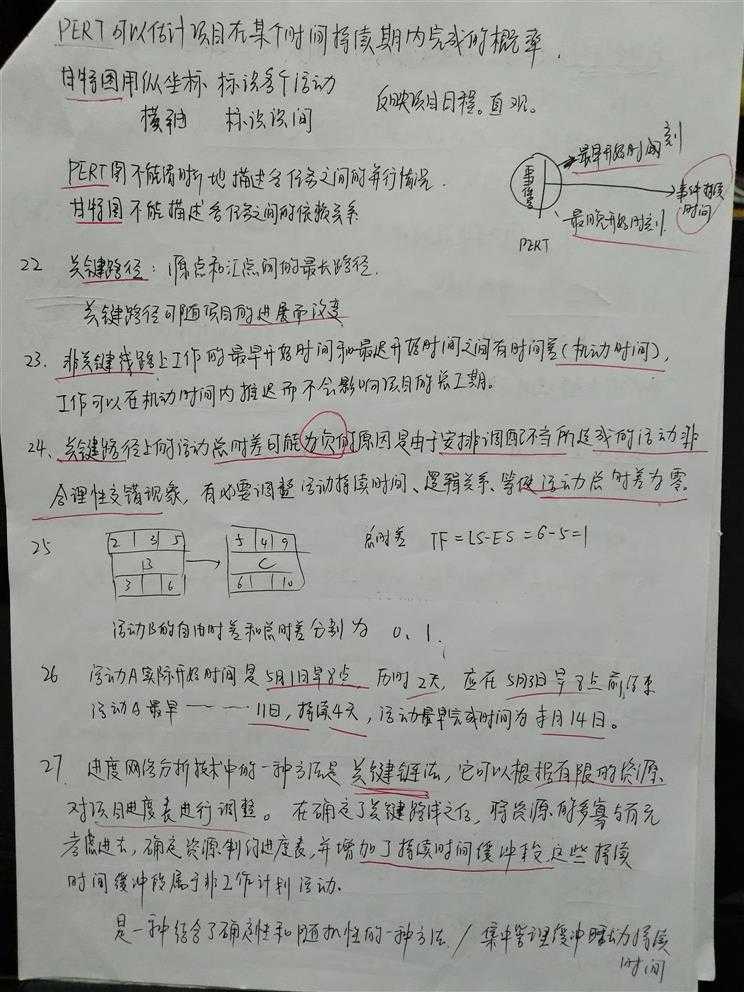 PERT可以估计项目在某个时间持续期内完成的概率.
甘特图用纵坐标 标识各个活动
横轴 标识时间
反映项目日程。直观。
PERT图不能清晰地描述各任务之间的并行情况.
甘特图不能描述各任务之间的依赖关系
最早开始时刻
事件号
事件持续时间
最晚开始时刻
PERT
22 关键路径:源点和汇点间的最长路径.
关键路径可随项目的进展而改变
23. 非关键线路上工作的最早开始时间和最迟开始时间之间有时间差(机动时间),
工作可以在机动时间内推迟而不会影响项目的总工期。
24、关键路径上的活动总时差可能为负的原因是由于安排调配不当所造成的活动非
合理性交错现象,有必要调整活动持续时间、逻辑关系、等使活动总时差为零。
25
2 3 5
B
3 6
5 4 9
C
6 10
总时差 TF=LS-ES=6-5=1
活动B的自由时差和总时差分别为 0、1.
26 活动A实际开始时间是5月1日早8点 历时2天,应在5月3日早8点前结束
活动A最早——……11日,持续4天,活动最早完成时间为本月14日。
27、进度网络分析技术中的一种方法是关键链法,它可以根据有限的资源
对项目进度表进行调整。在确定了关键路线之后,将资源的多寡与有无
考虑进去,确定资源制约进度表,并增加了持续时间缓冲段,这些持续
时间缓冲段属于非工作计划活动.
是一种结合了确定性和随机性的一种方法/集中管理缓冲活动持续
时间